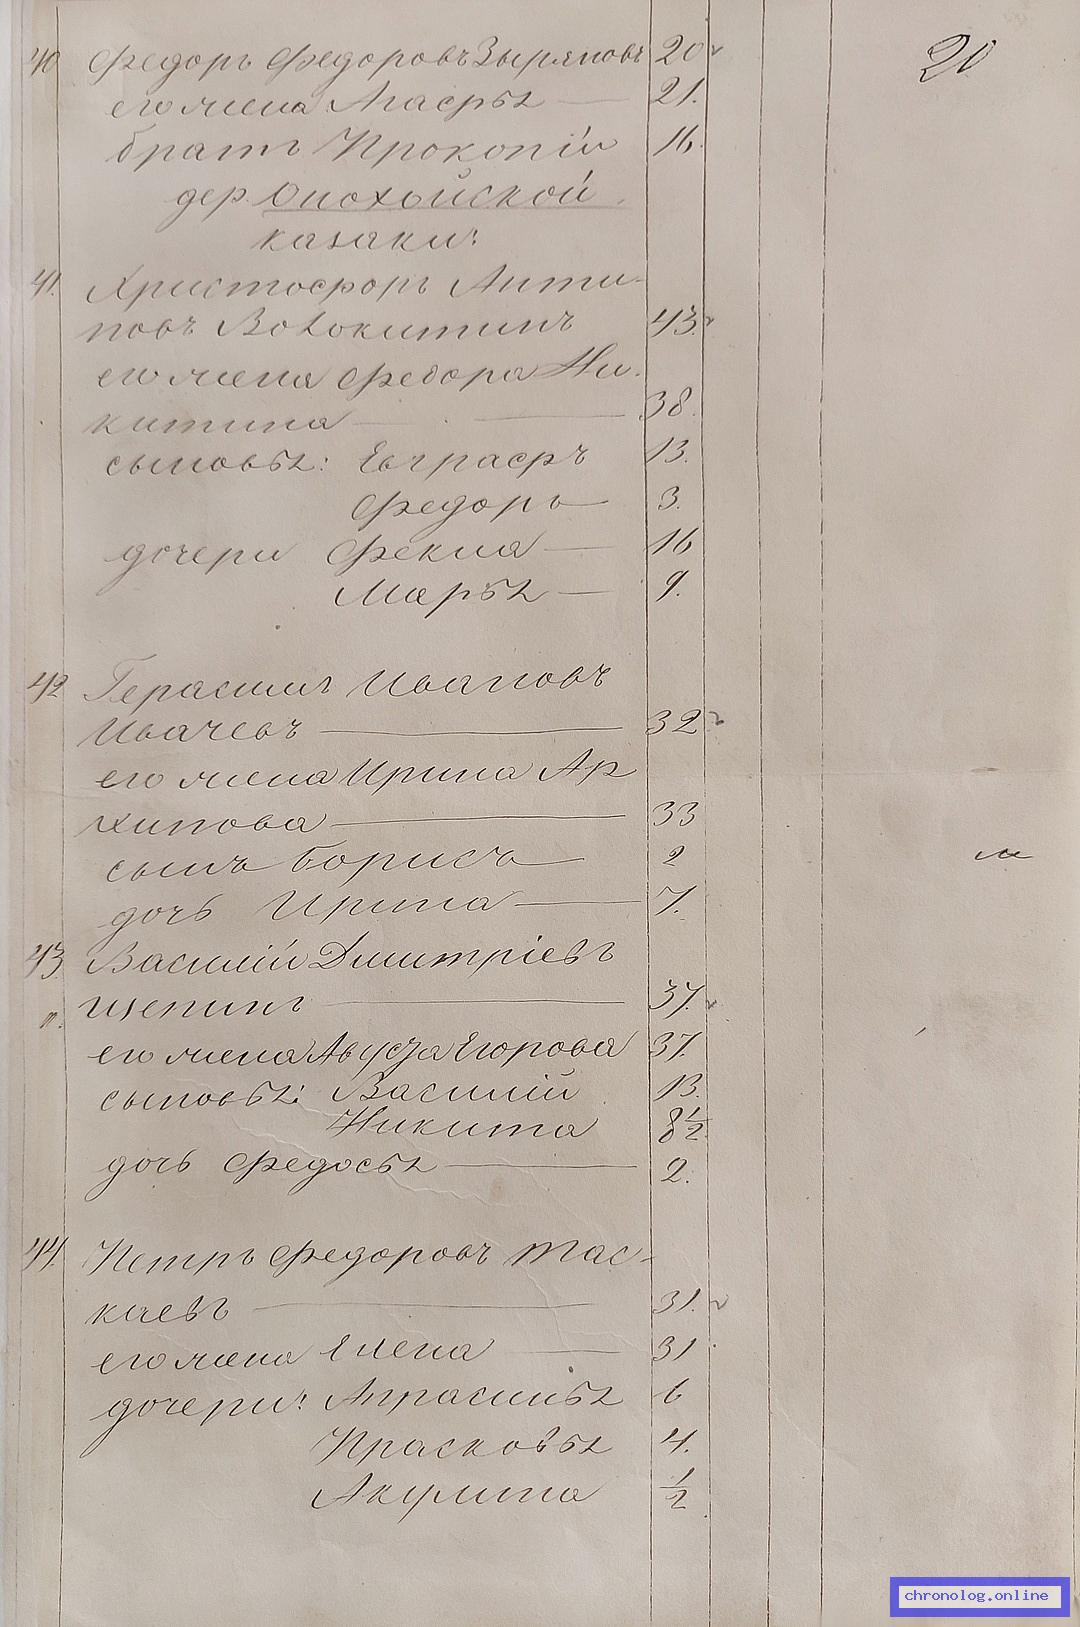 20
40 Федоръ Федоровъ Зыряновъ 20
его жена Агафья 21.
братъ Прокопій 16.
дер. Онохойской
казаки:
41. Христофоръ Анти-
повъ Волокитинъ 43.
его жена Федора Ни-
китина 38.
сыновья: Евграфъ 13.
Федоръ 3.
дочери Фекла 16
Марья 9.
42 Герасимъ Ивановъ
Ивачевъ 32
его жена Ирина Ар
хипова 33
сынъ Борисъ 2
дочь Ирина 7.
43. Василій Дмитріевъ
Щепинъ 37.
его жена Егорова 37.
сыновья: Василій 13.
Никита 8 1/2
дочь Федосья 2.
44. Петръ Федоровъ Мас-
каевъ 31.
его жена Елена 31
дочери: Апрасинья 6
Прасковья 4.
Акулина 1/2
chronolog.online